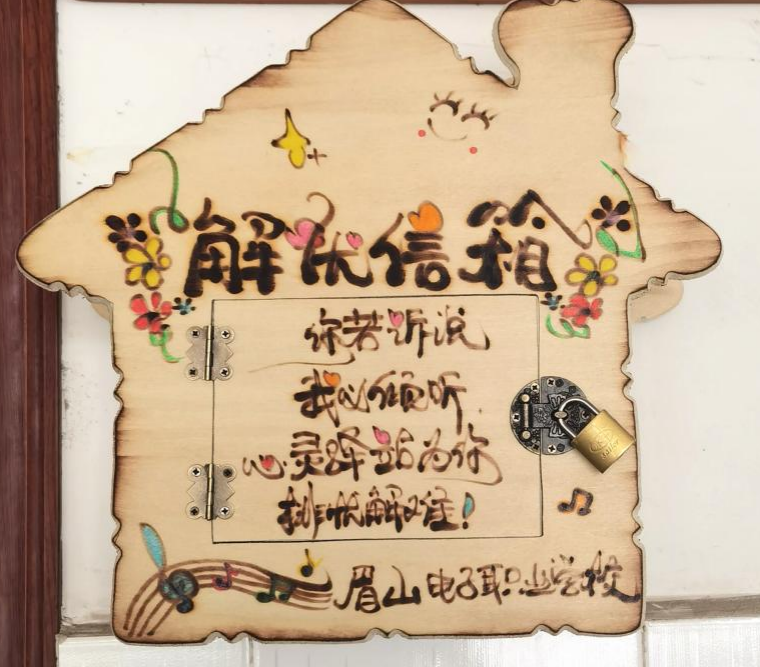 解忧信箱
你若诉说
我必倾听
心灵驿站为你
排忧解难！
眉山电子职业学校